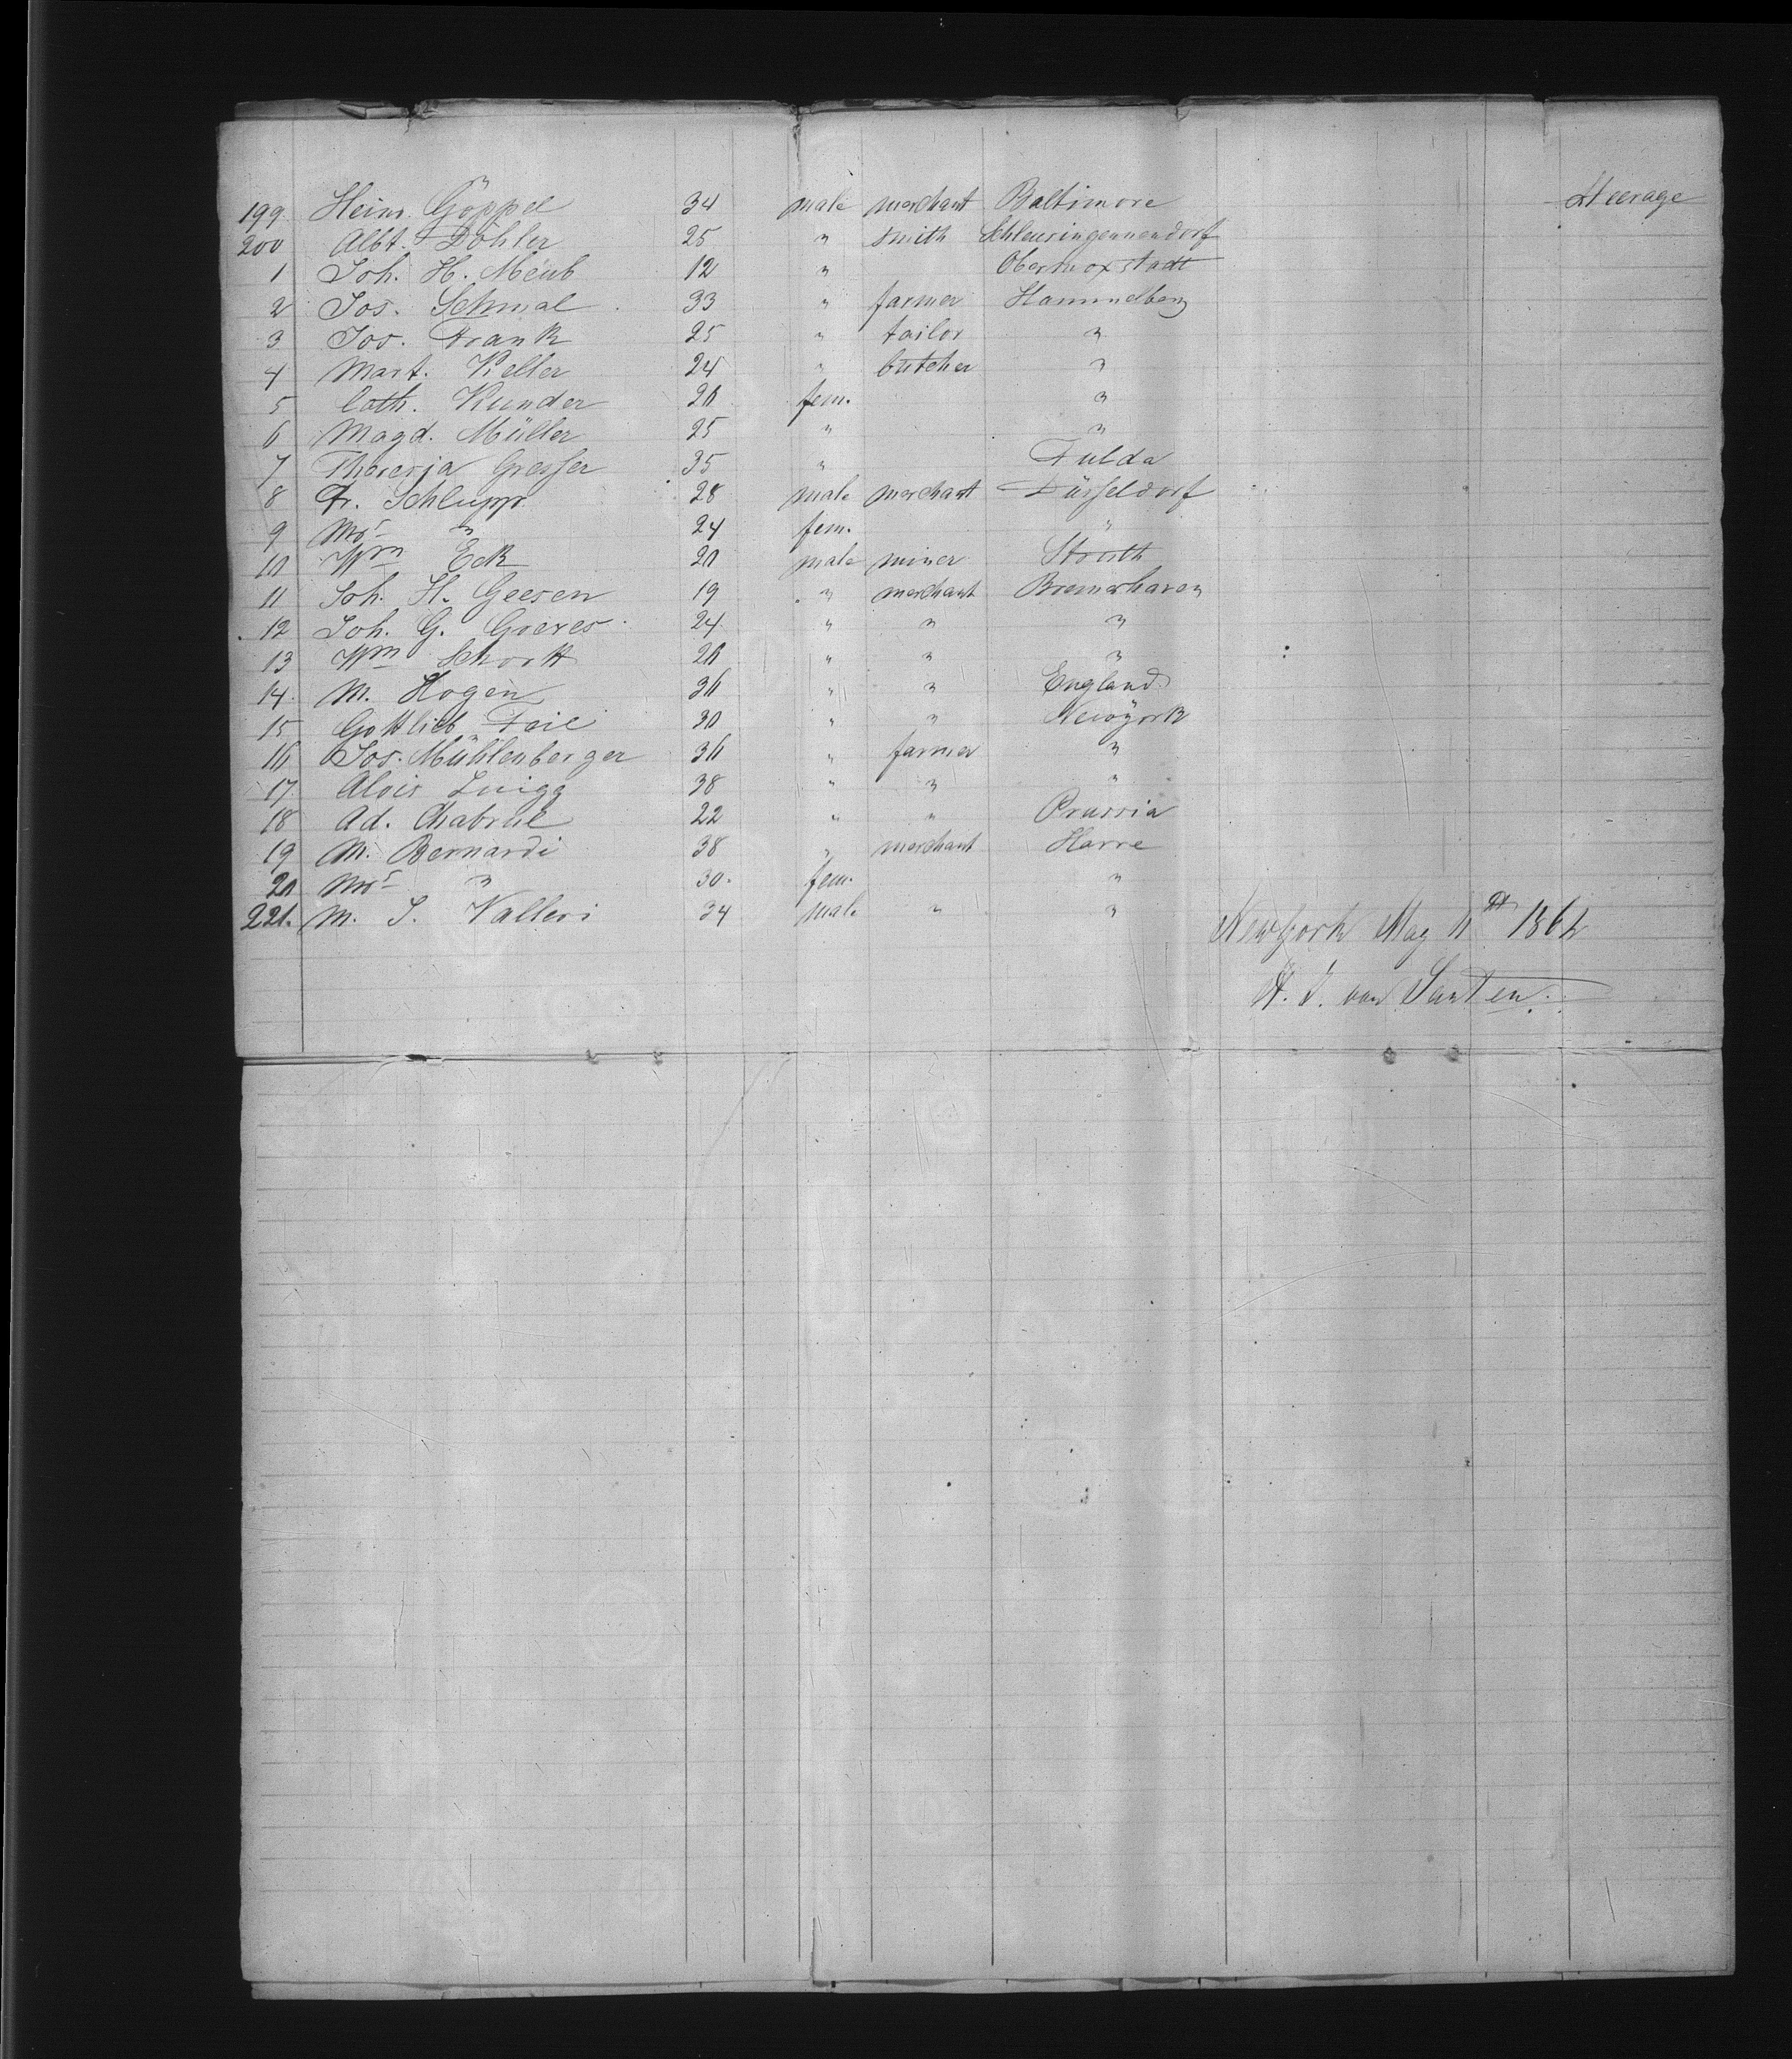 199. Heinr. Göppel 34 male merchant Baltimore Steerage
200 Albt. Döhler 25 " smith Schleusingenneundorf
1 Joh. H. Meub 12 " Obermoxstadt
2 Jos. Schmal 33 " farmer Hammelberg
3 Jos. Frank 25 " tailor "
4 Mart. Keller 24 " butcher "
5 Cath. Kunder 20 fem. "
6 Magd. Müller 25 " "
7 Theresia Gresser 35 " Fulda
8 Fr. Schlupp 28 male merchant Düsseldorf
9 Mrs " 24 fem. "
10 Wm Eck 20 male miner Struth
11 Joh. H. Geesen 19 " merchant Bremerhaven
12 Joh. G. Goeres 24 " " "
13 Wm Schortt 20 " " "
14. M. Hogen 36 " " England
15 Gottlieb Faie 30 " " Newyork
16 Jos. Mühlenberger 36 " farmer "
17. Alois Luigg 38 " " "
18 Ad. Chabrul 22 " " Prussia
19 M. Bernardi 38 " merchant Havre
20 Mrs " 30. fem. "
221. M. S. Valleri 34 male " "
Newyork May 1862
H. J. van Santen.